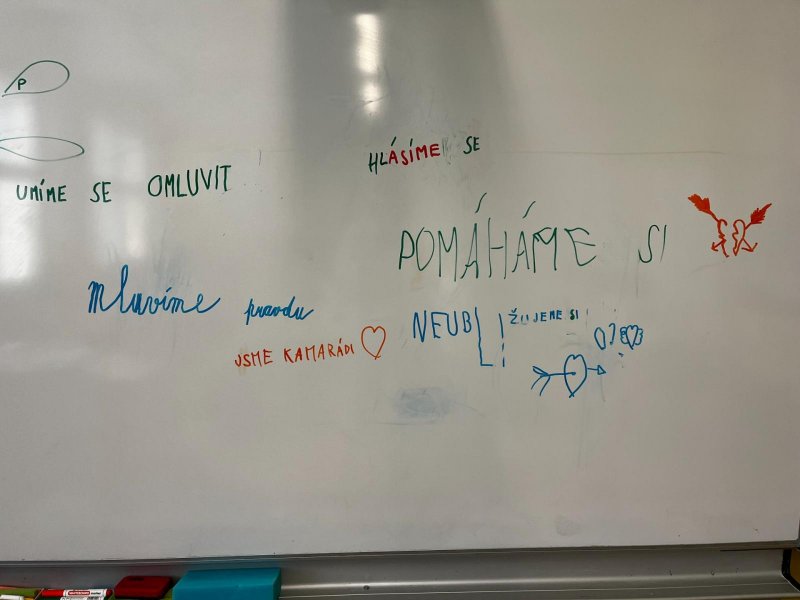 P
HLÁSÍME SE
UMÍME SE OMLUVIT
POMÁHÁME SI
Mluvíme pravdu
NEUBLIŽUJEME SI
JSME KAMARÁDI